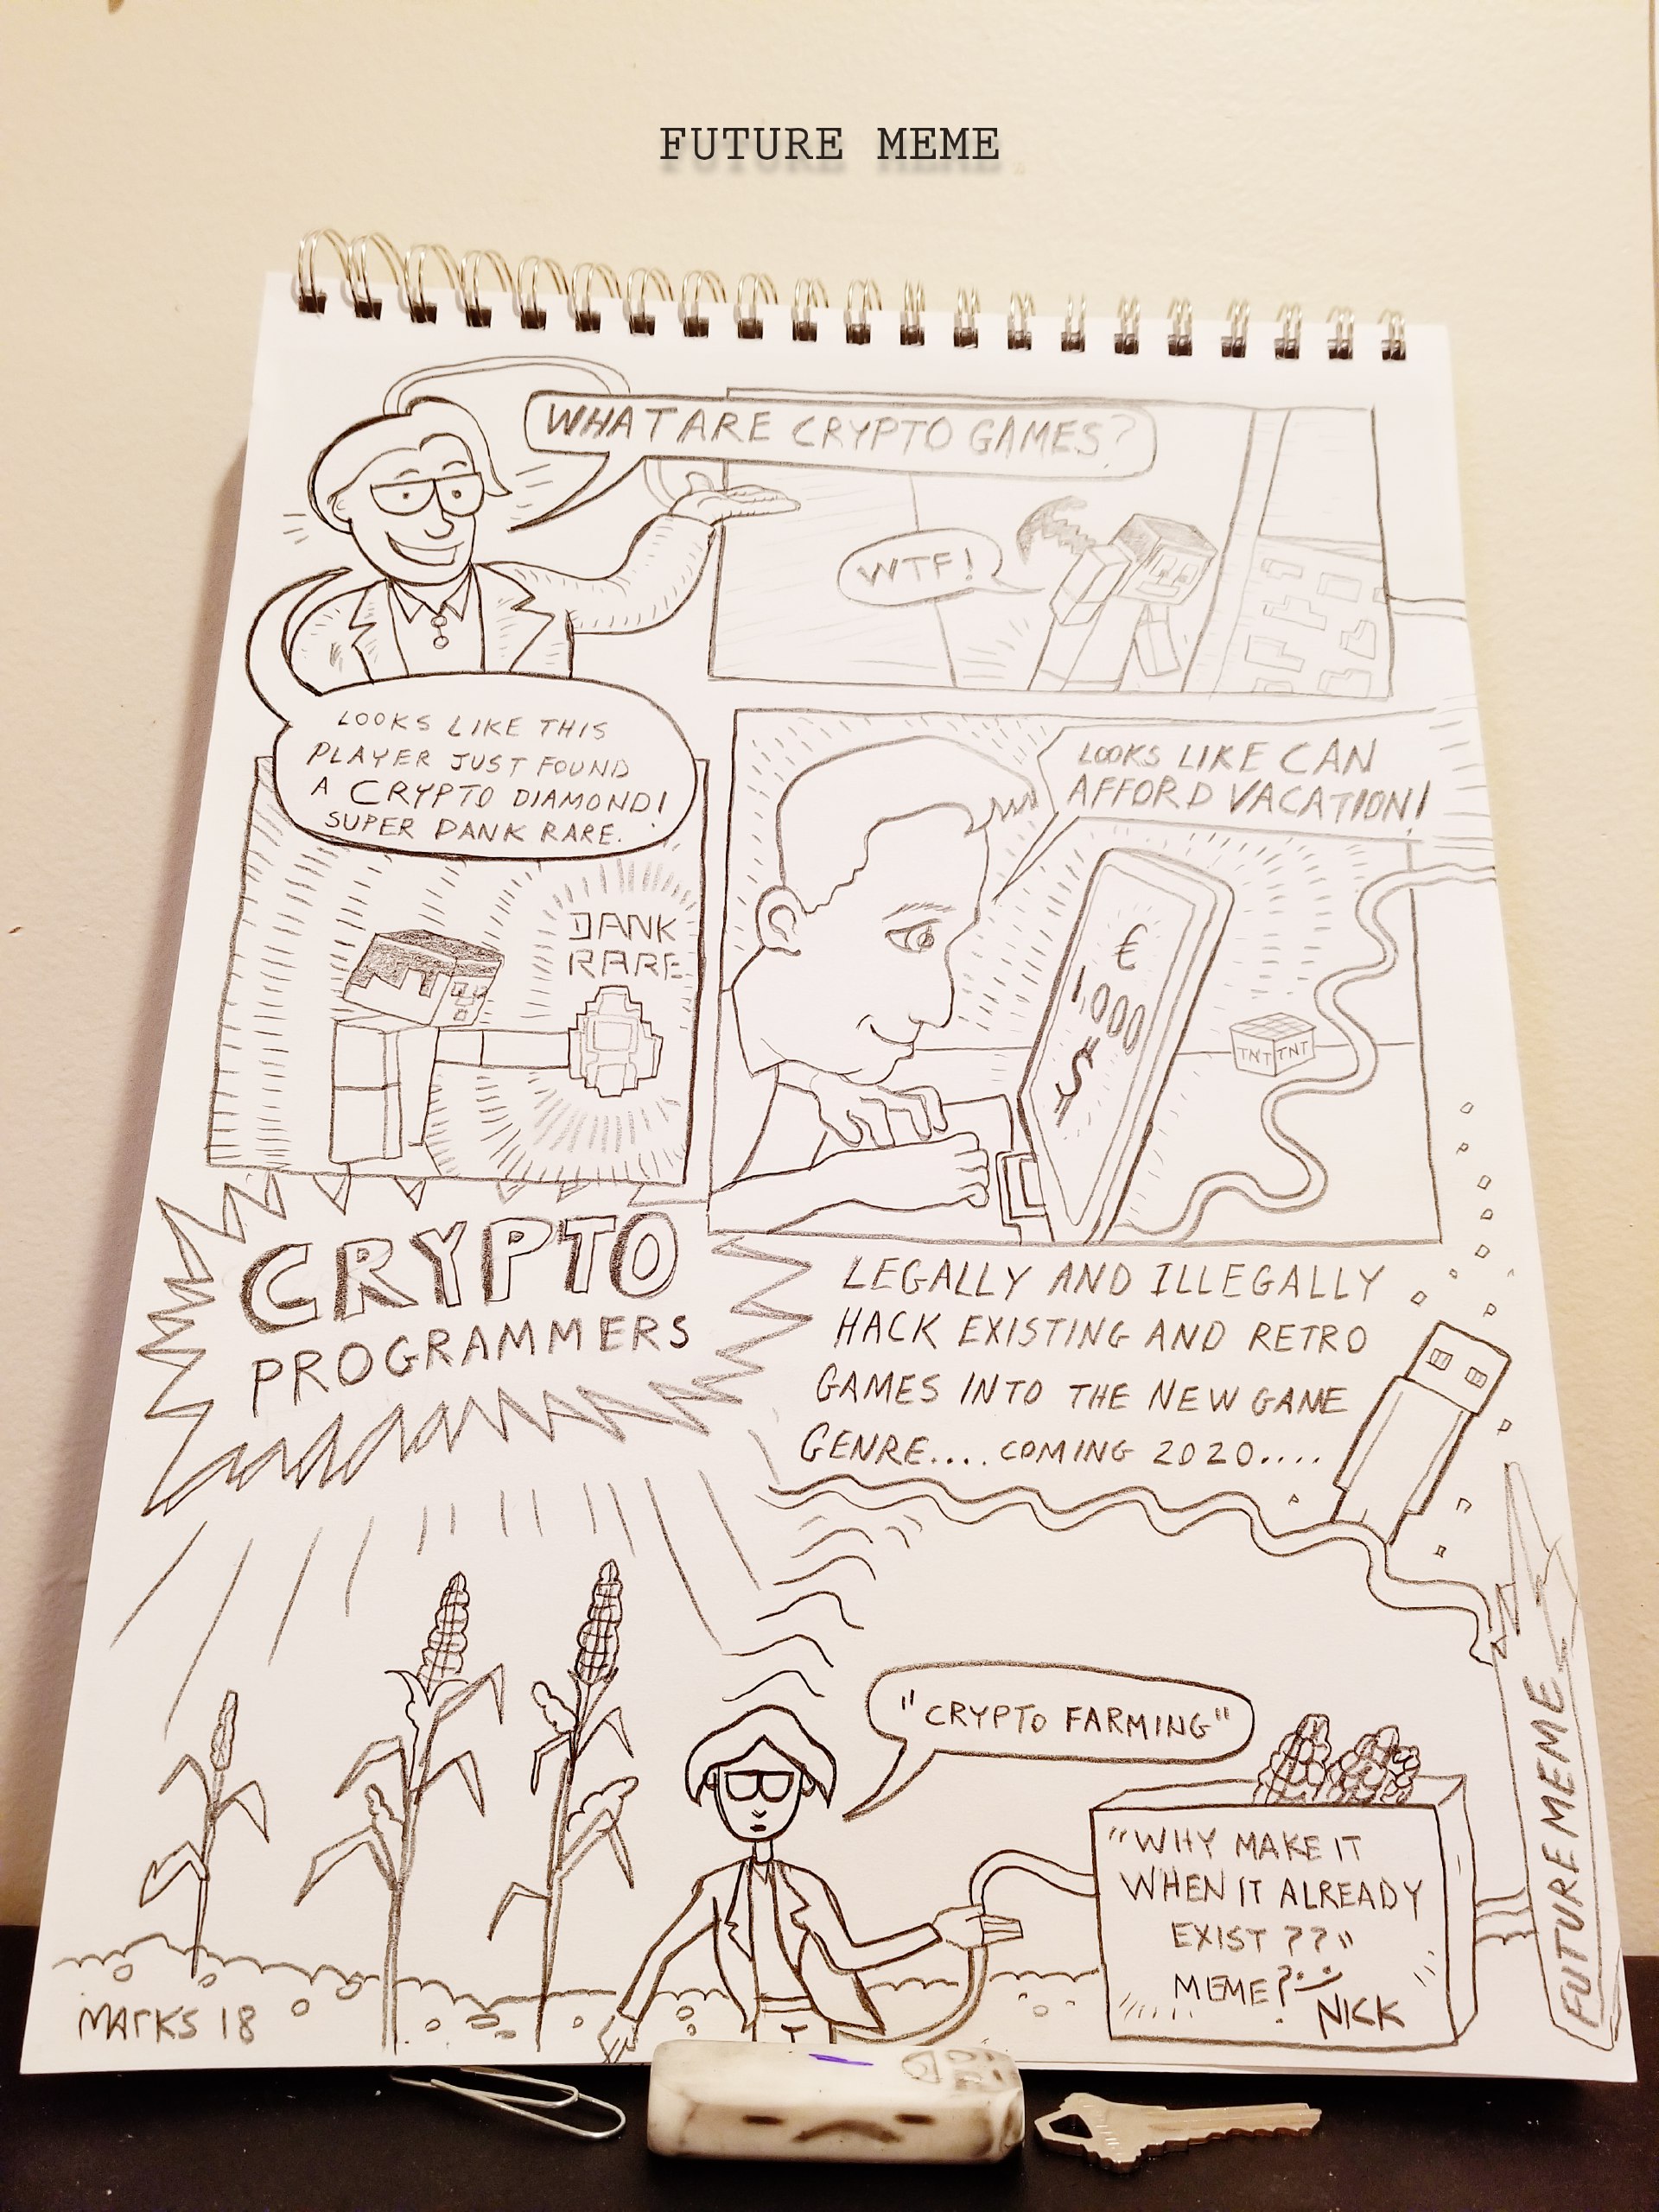 FUTURE MEME
WHAT ARE CRYPTO GAMES?
WTF!
LOOKS LIKE THIS
PLAYER JUST FOUND
A CRYPTO DIAMOND!
SUPER DANK RARE.
DANK
RARE
LOOKS LIKE CAN
AFFORD VACATION!
€
1,000
$
TNT TNT
CRYPTO
PROGRAMMERS
LEGALLY AND ILLEGALLY
HACK EXISTING AND RETRO
GAMES INTO THE NEW GAME
GENRE.... COMING 2020....
"CRYPTO FARMING"
"WHY MAKE IT
WHEN IT ALREADY
EXIST ??"
MEME?
NICK
FUTURE MEME
MARKS 18